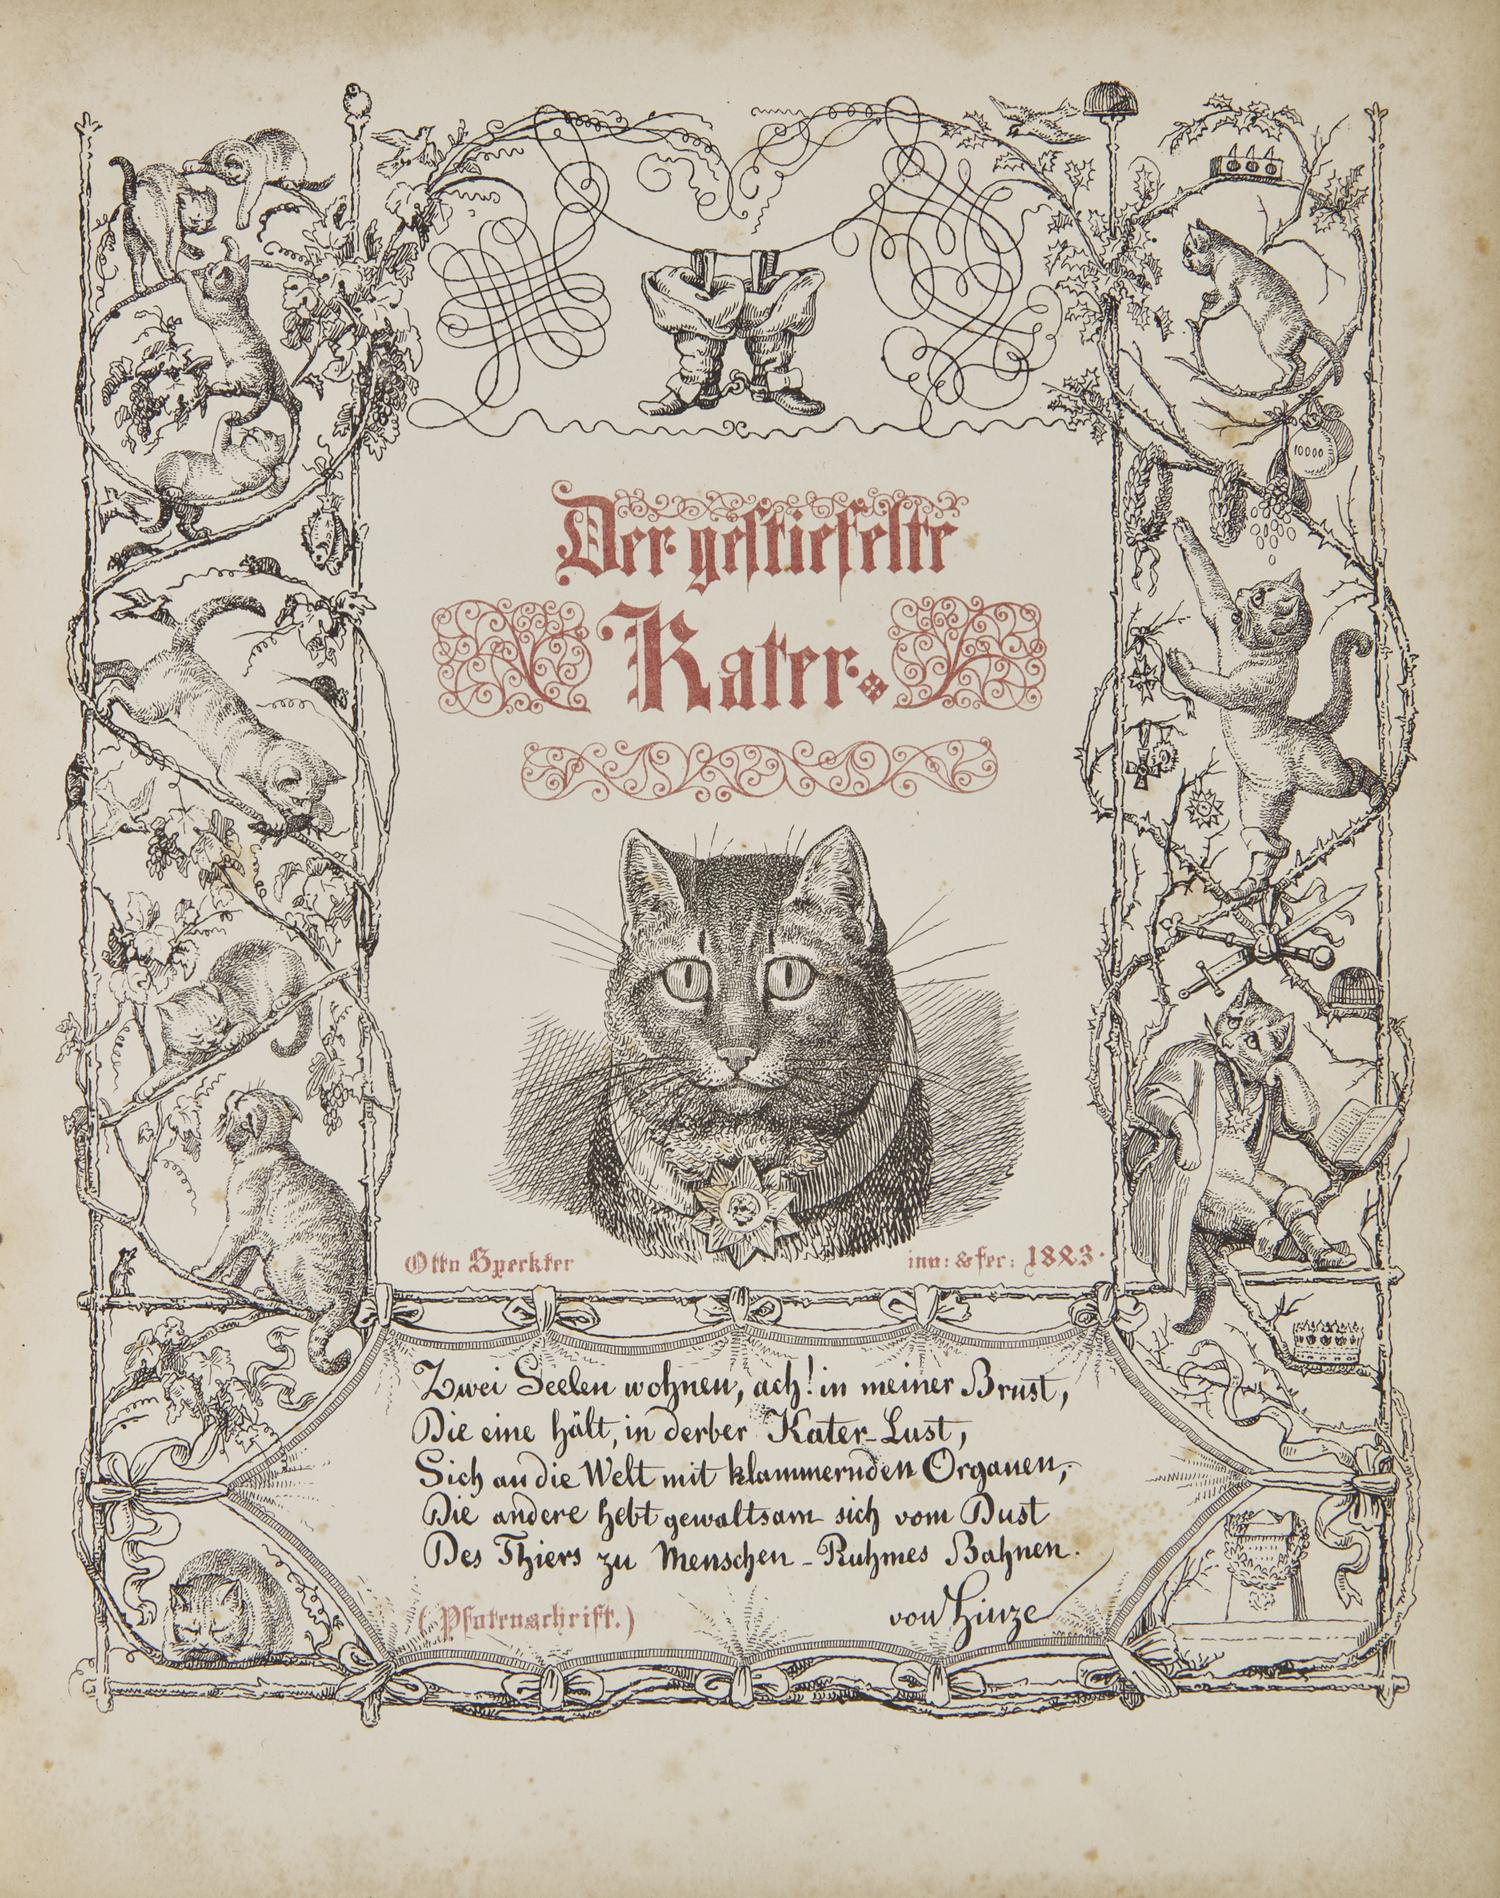 10000
Der gestiefelte
Kater.
Otto Speckter inv: & fec: 1843.
Zwei Seelen wohnen, ach! in meiner Brust,
Die eine hält, in derber Kater-Lust,
Sich an die Welt mit klammernden Organen,
Die andere hebt gewaltsam sich vom Dust
Des Thiers zu Menschen-Ruhmes Bahnen.
(Pfotenschrift.) von Hinze